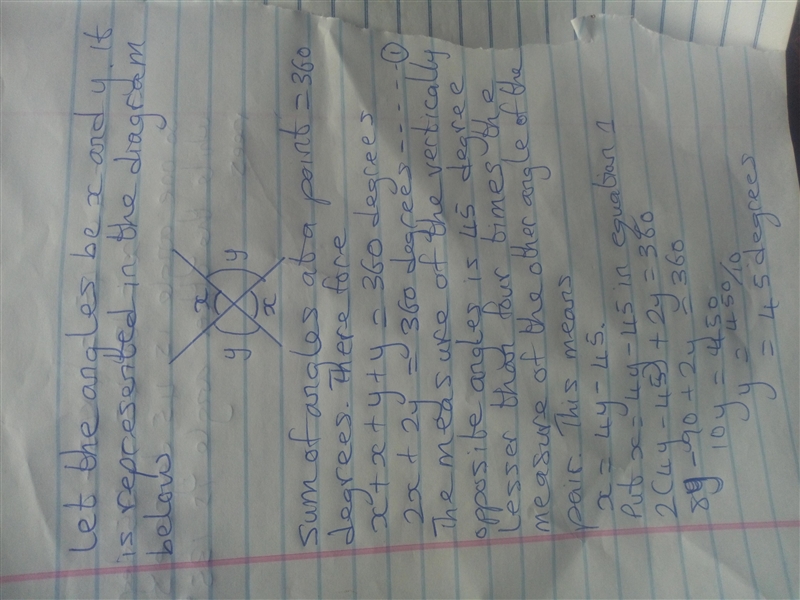 Let the angles be x and y. It
is represented in the diagram
below
x
y
y
x
Sum of angles at a point = 360
degrees. There fore
x + x + y + y = 360 degrees
2x + 2y = 360 degrees ----- ①
The measure of the vertically
opposite angles is 45 degree
lesser than four times the
measure of the other angle of the
pair. This means
x = 4y - 45.
Put x = 4y - 45 in equation 1
2(4y - 45) + 2y = 360
8y - 90 + 2y = 360
10y = 450
y = 450/10
y = 45 degrees